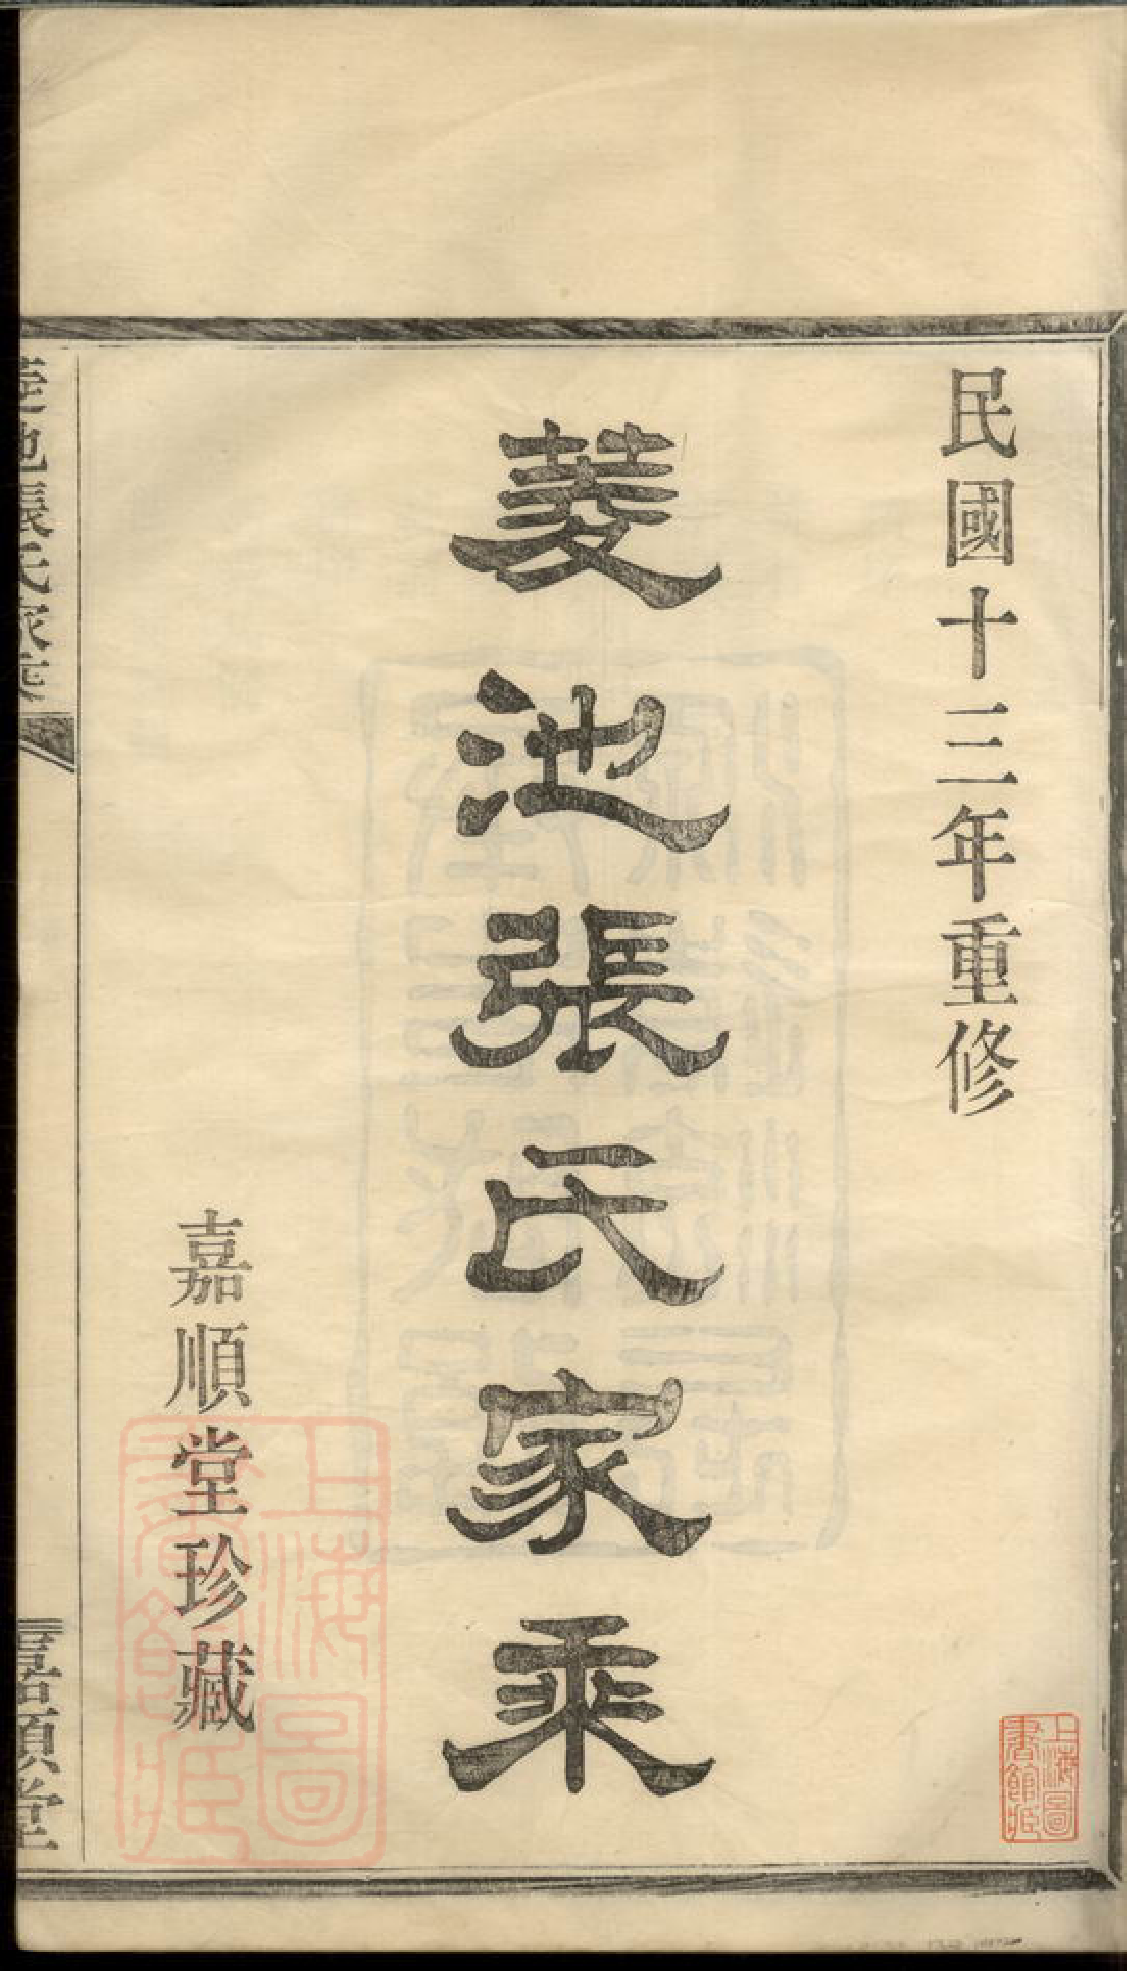 民國十三年重修
菱池張氏家乘
嘉順堂珍藏
菱池張氏家乘
嘉順堂
上海圖書館藏
上海圖書館藏